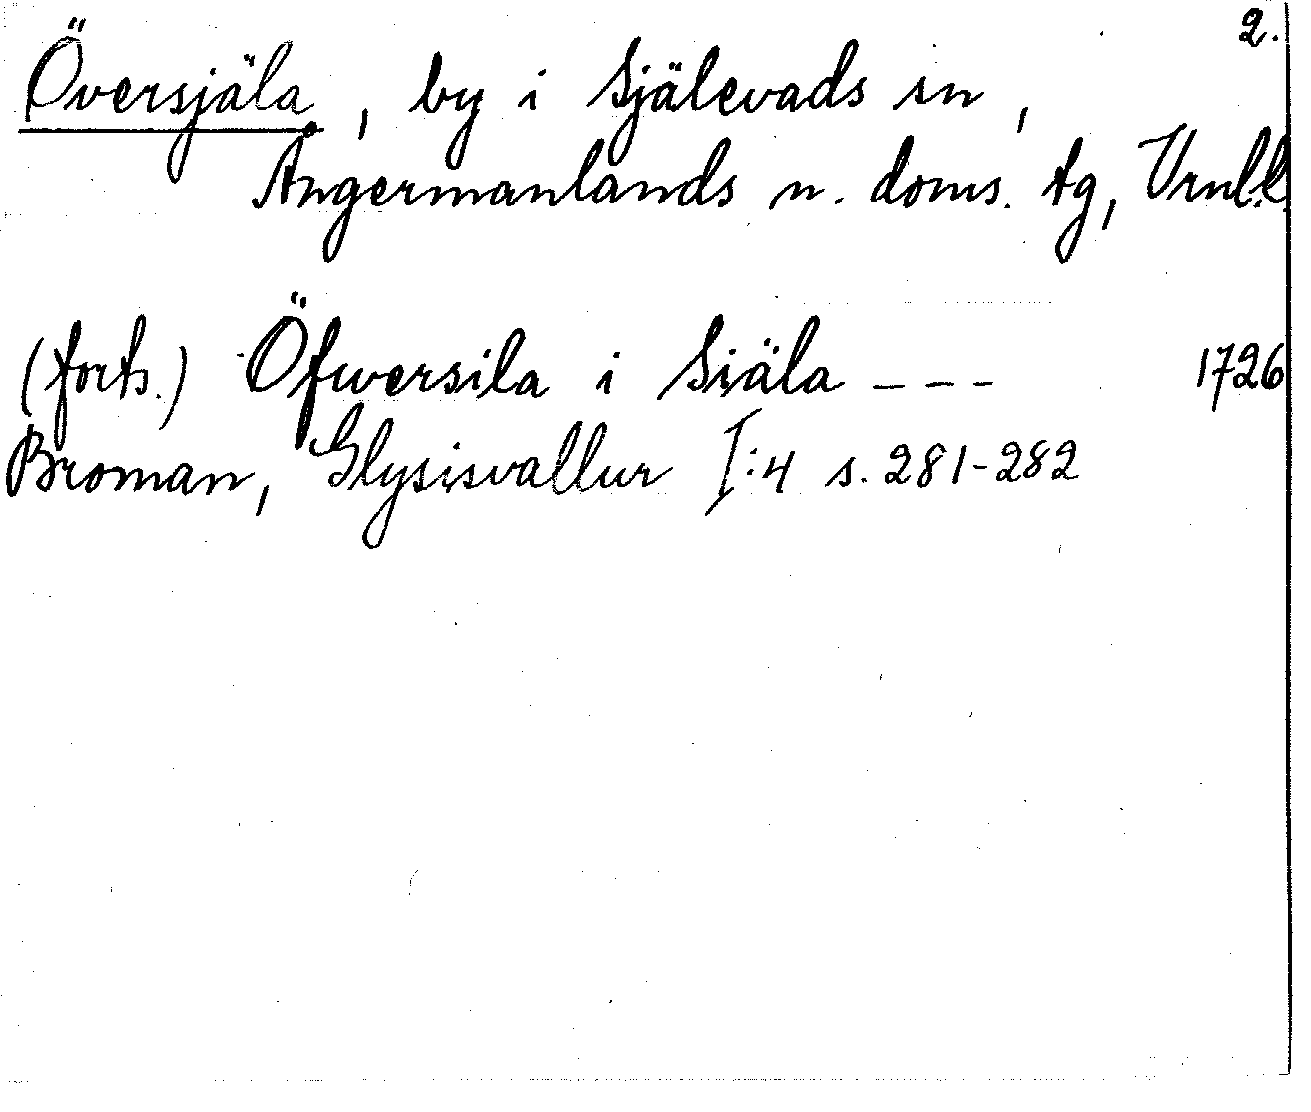 2.
Översjäla, by i Själevads sn,
Ångermanlands n. doms. tg, Vrnl.l.
(forts.) Öfwersila i Siäla --- 1726
Broman, Glysisvallur I:4 s. 281-282